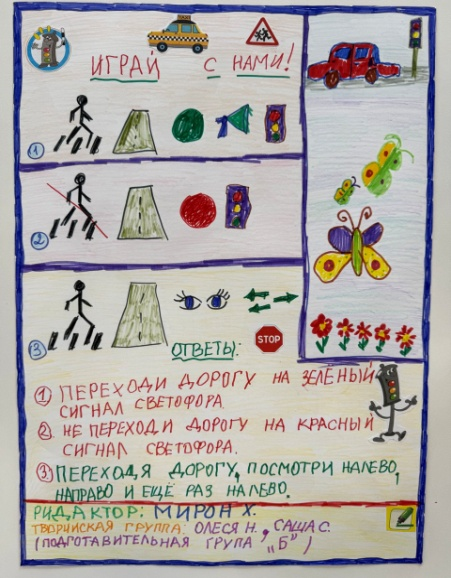 ИГРАЙ С НАМИ!
1
2
3
STOP
ОТВЕТЫ:
1 ПЕРЕХОДИ ДОРОГУ НА ЗЕЛЁНЫЙ
СИГНАЛ СВЕТОФОРА.
2. НЕ ПЕРЕХОДИ ДОРОГУ НА КРАСНЫЙ
СИГНАЛ СВЕТОФОРА.
3 ПЕРЕХОДЯ ДОРОГУ, ПОСМОТРИ НАЛЕВО,
НАПРАВО И ЕЩЁ РАЗ НАЛЕВО.
РИДАКТОР: МИРОН Х.
ТВОРЧИСКАЯ ГРУППА: ОЛЕСЯ Н., САША С.
(ПОДГОТАВИТЕЛЬНАЯ ГРУПА „Б")